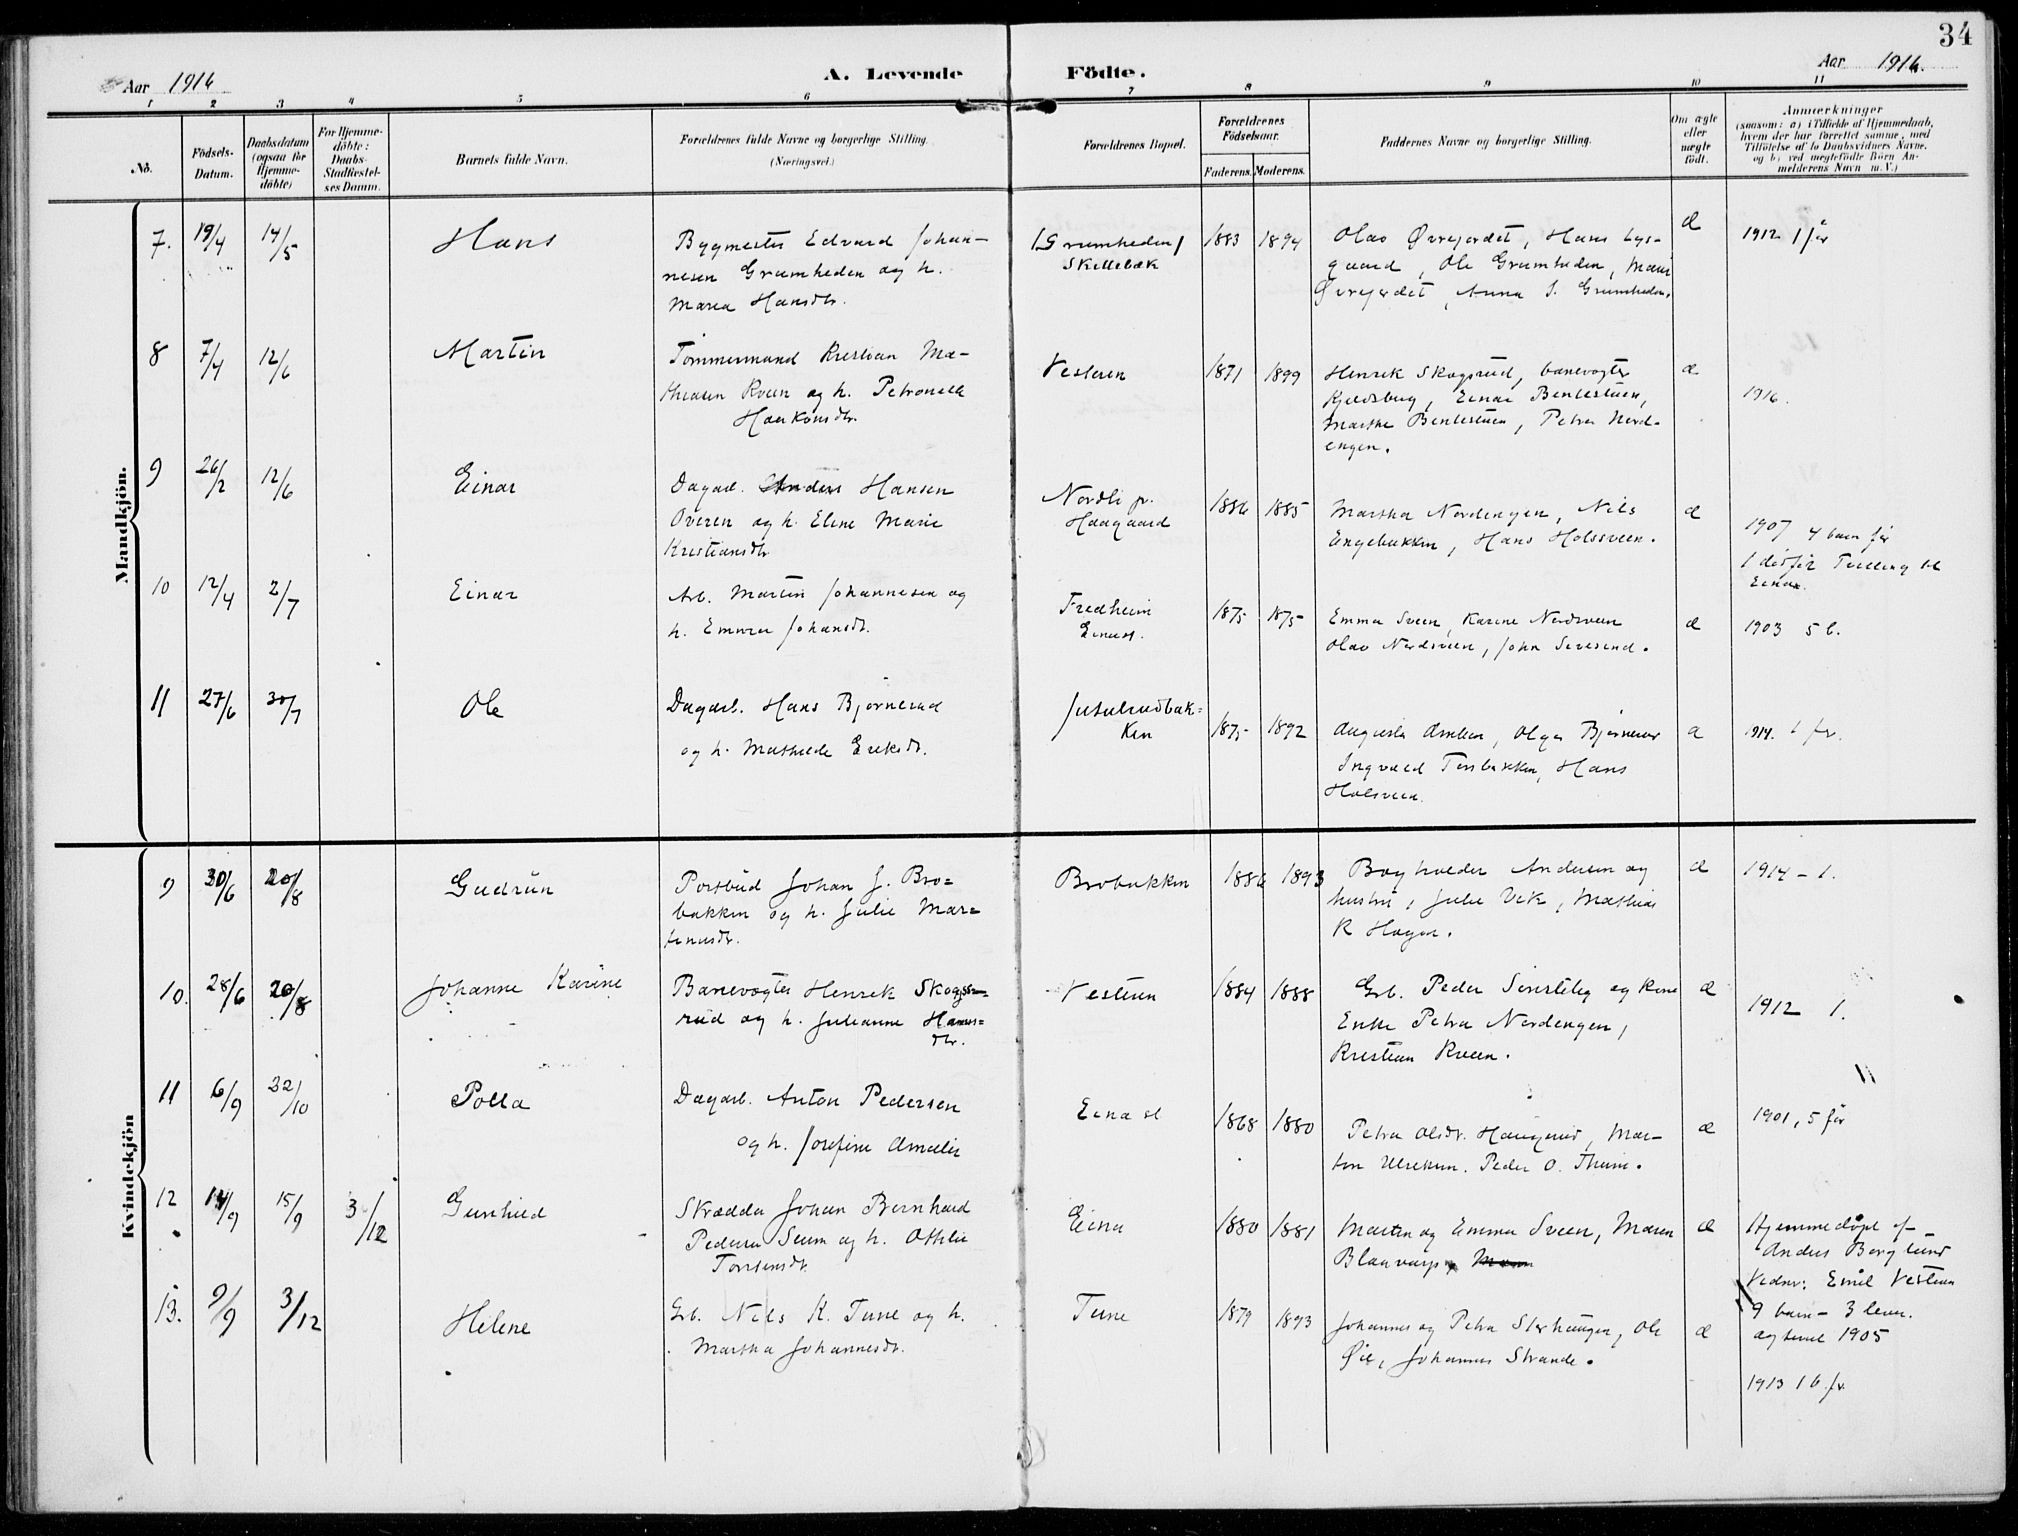 34
Aar 1916
A. Levende
Födte.
Aar 1916.
1 2 3 4 5 6 7 8 9 10 11
No.
Födsels-
Datum.
Daabsdatum
(ogsaa for
Hjemme-
döbte)
For Hjemme-
döbte:
Daabs-
Stadfæstel-
ses Datum.
Barnets fulde Navn.
Forældrenes fulde Navne og borgerlige Stilling.
(Næringsvei.)
Forældrenes Bopæl.
Forældrenes
Födselsaar.
Faderens. Moderens.
Faddernes Navne og borgerlige Stilling.
Om ægte
eller
uægte
födt.
Anmærkninger
(saasom: a) i Tilfælde af Hjemmedaab,
hvem der har forrettet samme, med
Tilföielse af to Daabsvidners Navne.
og b) ved uegtefödte Börn An-
melderens Navn m. V.)
Mandkjön.
7. 19/4 14/5
Hans
Bygmester Edvard Johan-
nesen Grumheden og h.
Maria Hansdtr.
(Grumheden)
Skillebæk
1883 1894
Olav Øvrejordet, Hans Lys-
gaard, Ole Grumheden, Marie
Øvrejordet, Anna J. Grumheden.
æ
1912 1 før
8 7/4 12/6
Martin
Tømmermand Kristian Ma-
thisen Kveen og h. Petronelle
Haakonsdtr.
Vesteren
1871 1899
Henrik Skogsrud, banevogter
Kjeldsberg, Einar Bentestuen,
Marthe Bentestuen, Petra Nord-
engen.
æ
1916.
9 26/2 12/6
Einar
Dagarb. Anders Hansen
Overen og h. Eline Marie
Kristiansdtr
Nordli pr.
Haagaard
1886 1885
Martha Nordengen, Nils
Engebakken, Hans Holssveen.
æ
1907 4 barn før
1 dødfør Tvilling til
Einar.
10 12/4 2/7
Einar
Arb. Martin Johannesen og
h. Emma Johansdtr.
Fredheim
Einast.
1875 1875
Emma Sveen, Karine Nordsveen
Olav Nordsveen, John Seversend.
æ
1903 5 b.
11 27/6 30/7
Ole
Dagarb. Hans Bjørnerud
og h. Mathilde Eriksdtr.
Jutulrudbak-
ken
1875 1892
Olga Bjørnerud
Ingvald Torsbakken, Hans
Holsveen.
1914. 1 før.
Kvindekjön
9 30/6 20/8
Gudrun
Postbud Johan J. Bro-
bakken og h. Julie Mar-
tinusdtr.
Brobakken
1886 1893
Bogholder Andersen og
hustru, Julie Vik, Mathias
K Hagen.
æ
1914 - 1.
10. 28/6 20/8
Johanne Karine
Banevogter Henrik Skogs-
rud og h. Julianne Hans-
dtr.
Vesteren
1884 1888
Grb. Peder Sivesteby og kone
Enke Petra Nordengen,
Kristian Kveen.
æ
1912 1.
11 6/9 22/10
Polla
Dagarb. Anton Pedersen
og h. Josefine Amalie
Eina st
1868 1880
Petra Olsdtr. Haugerud, Mar-
ton Ulreksen. Peder O. Thune.
æ
1901, 5 før
12 14/9 15/9 3/12
Gunhild
Skrædder Johan Bernhard
Pedersen Seem og h. Othilie
Torstensdtr.
Eina
1880 1881
Martin og Emma Sveen, Maren
Blaavarp
æ
Hjemmedøpt af
Anders Berglund
Vidner: Emil Vesteren
9 barn - 3 lever.
1905
13. 9/9 3/12
Helene
Grb. Nils K. Tune og h.
Martha Johannesdtr.
Tune
1879 1893
Johannes og Petra Sterhaugen, Ole
Øie, Johannes Strande.
æ
1913 1 b. før